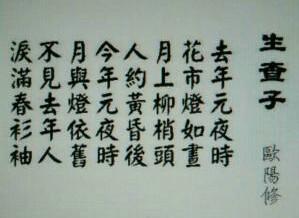 生查子
歐陽修
去年元夜時
花市燈如晝
月上柳梢頭
人約黃昏後
今年元夜時
月與燈依舊
不見去年人
淚滿春衫袖